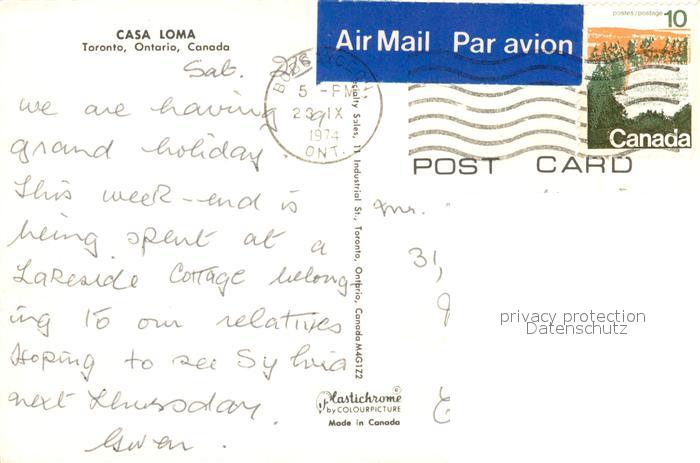 CASA LOMA
Toronto, Ontario, Canada
Sat.
we are having a
grand holiday.
This week-end is
being spent at a
Lakeside Cottage belong-
ing to our relatives
Hoping to see Sylvia
next Thursday.
Gwen.
5 - PM
23 IX
1974
ONT.
Specialty Sales, 11 Industrial St., Toronto, Ontario, Canada M4G1Z2
Plastichrome ®
by COLOURPICTURE
Made in Canada
Air Mail Par avion
postes/postage 10
Canada
POST CARD
Mr.
31,
privacy protection
Datenschutz